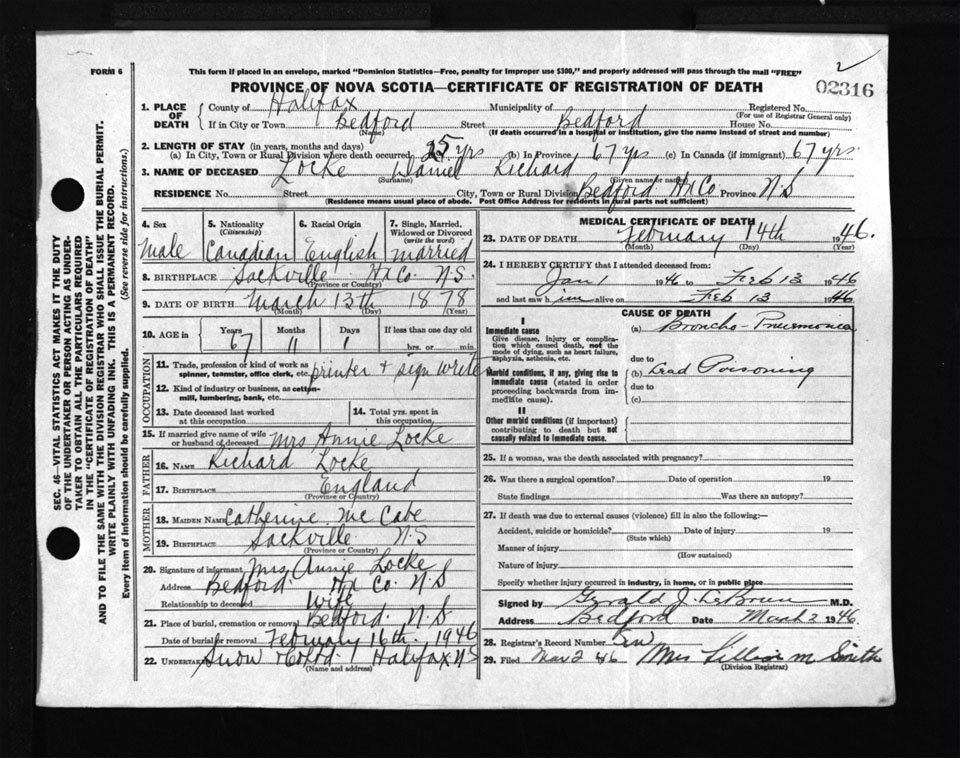 FORM 6
This form if placed in an envelope, marked "Dominion Statistics—Free, penalty for improper use $300," and properly addressed will pass through the mail "FREE"
2
02316
PROVINCE OF NOVA SCOTIA—CERTIFICATE OF REGISTRATION OF DEATH
SEC. 46—VITAL STATISTICS ACT MAKES IT THE DUTY
OF THE UNDERTAKER OR PERSON ACTING AS UNDER-
TAKER TO OBTAIN ALL THE PARTICULARS REQUIRED
IN THE "CERTIFICATE OF REGISTRATION OF DEATH"
AND TO FILE THE SAME WITH THE DIVISION REGISTRAR WHO SHALL ISSUE THE BURIAL PERMIT.
WRITE PLAINLY WITH UNFADING INK. THIS IS A PERMANENT RECORD.
Every item of information should be carefully supplied. (See reverse side for instructions.)
1. PLACE OF DEATH
County of Halifax Municipality of Registered No.
(For use of Registrar General only)
If in City or Town Bedford Street Bedford House No.
(Name) (If death occurred in a hospital or institution, give the name instead of street and number)
2. LENGTH OF STAY (in years, months and days)
(a) In City, Town or Rural Division where death occurred 25 yrs (b) In Province 67 yrs (c) In Canada (if immigrant) 67 yrs.
3. NAME OF DECEASED Locke Daniel Richard
(Surname) (Given name or names)
RESIDENCE No. Street City, Town or Rural Division Bedford Hx Co. Province N.S
(Residence means usual place of abode. Post Office Address for residents in rural parts not sufficient)
4. Sex
Male
5. Nationality
(Citizenship)
Canadian
6. Racial Origin
English
7. Single, Married,
Widowed or Divorced
(write the word)
married
8. BIRTHPLACE Sackville Hx Co. N.S.
(Province or Country)
9. DATE OF BIRTH March 13th 1878
(Month) (Day) (Year)
10. AGE in
Years Months Days If less than one day old
67 11 1 hrs. or min.
OCCUPATION
11. Trade, profession or kind of work as
spinner, teamster, office clerk, etc. printer + sign writer
12. Kind of industry or business, as cotton-
mill, lumbering, bank, etc.
13. Date deceased last worked
at this occupation
14. Total yrs. spent in
this occupation
15. If married give name of wife
or husband of deceased Mrs Annie Locke
FATHER
16. NAME Richard Locke
17. BIRTHPLACE England
(Province or Country)
MOTHER
18. MAIDEN NAME Catherine McCabe
19. BIRTHPLACE Sackville N.S
(Province or Country)
20. Signature of informant Mrs Annie Locke
Address Bedford Hx Co. N.S
Relationship to deceased Wife
21. Place of burial, cremation or removal Bedford N.S
Date of burial or removal February 16th. 1946
22. UNDERTAKER Snow + Co Ltd. Halifax N.S
(Name and address)
MEDICAL CERTIFICATE OF DEATH
23. DATE OF DEATH February 14th 1946.
(Month) (Day) (Year)
24. I HEREBY CERTIFY that I attended deceased from:
Jan 1 1946 to Feb 13 1946
and last saw him alive on Feb 13 1946
CAUSE OF DEATH
I
Immediate cause
Give disease, injury or complica-
tion which caused death, not the
mode of dying, such as heart failure,
asphyxia, asthenia, etc.
(a) Broncho-Pneumonia
due to
Morbid conditions, if any, giving rise to
immediate cause (stated in order
proceeding backwards from im-
mediate cause).
(b) Lead Poisoning
due to
(c)
II
Other morbid conditions (if important)
contributing to death but not
causally related to immediate cause.
25. If a woman, was the death associated with pregnancy?
26. Was there a surgical operation? Date of operation 19
State findings Was there an autopsy?
27. If death was due to external causes (violence) fill in also the following:—
Accident, suicide or homicide? Date of injury 19
(State which)
Manner of injury
(How sustained)
Nature of injury
Specify whether injury occurred in industry, in home, or in public place
Signed by Gerald J. LeBrun M.D.
Address Bedford Date March 2 1946.
28. Registrar's Record Number
29. Filed Mar 2 46 Mrs Lillian M Smith
(Division Registrar)